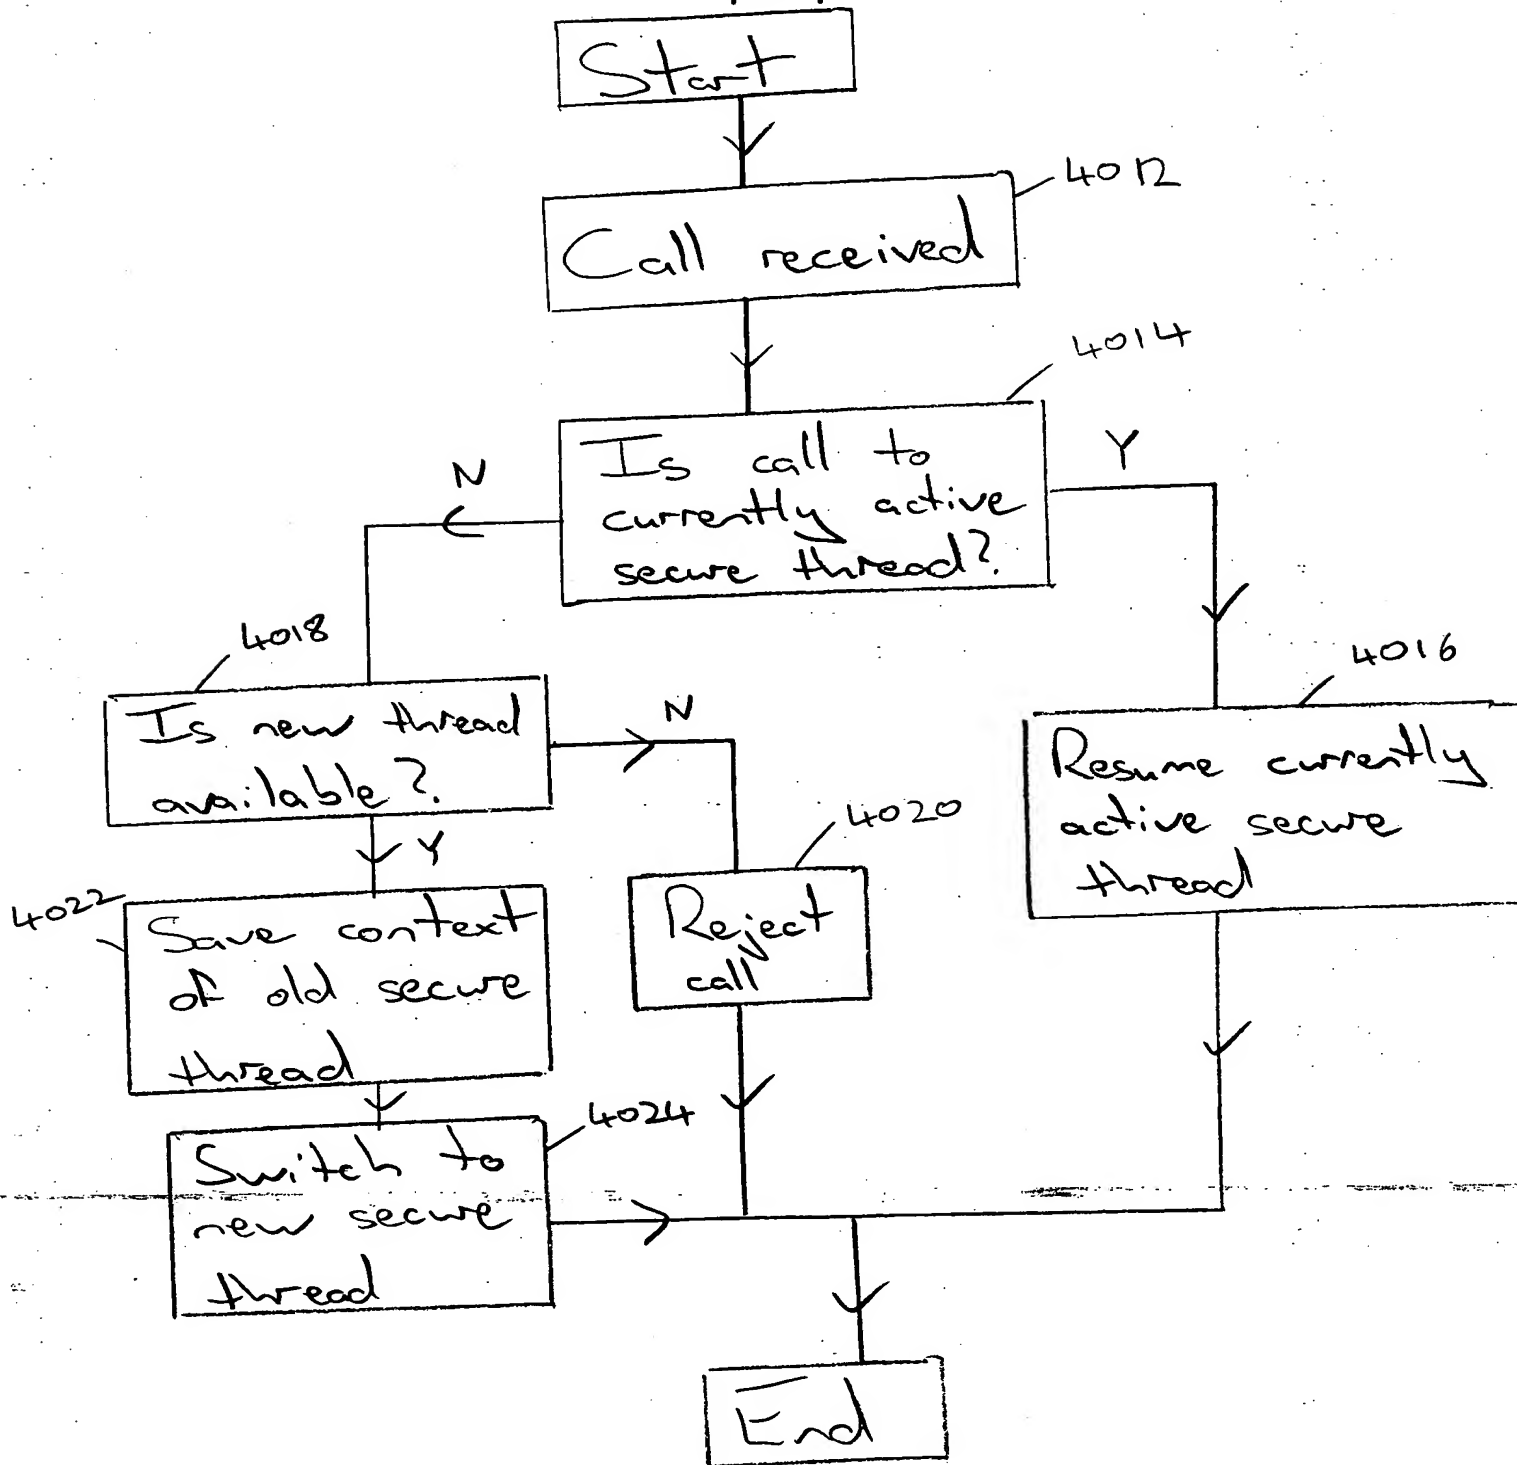 Start
4012
Call received
4014
Is call to
currently active
secure thread?
N
Y
4018
4016
Is new thread
available?
N
Resume currently
active secure
thread
Y
4020
4022
Save context
of old secure
thread
Reject
call
4024
Switch to
new secure
thread
End